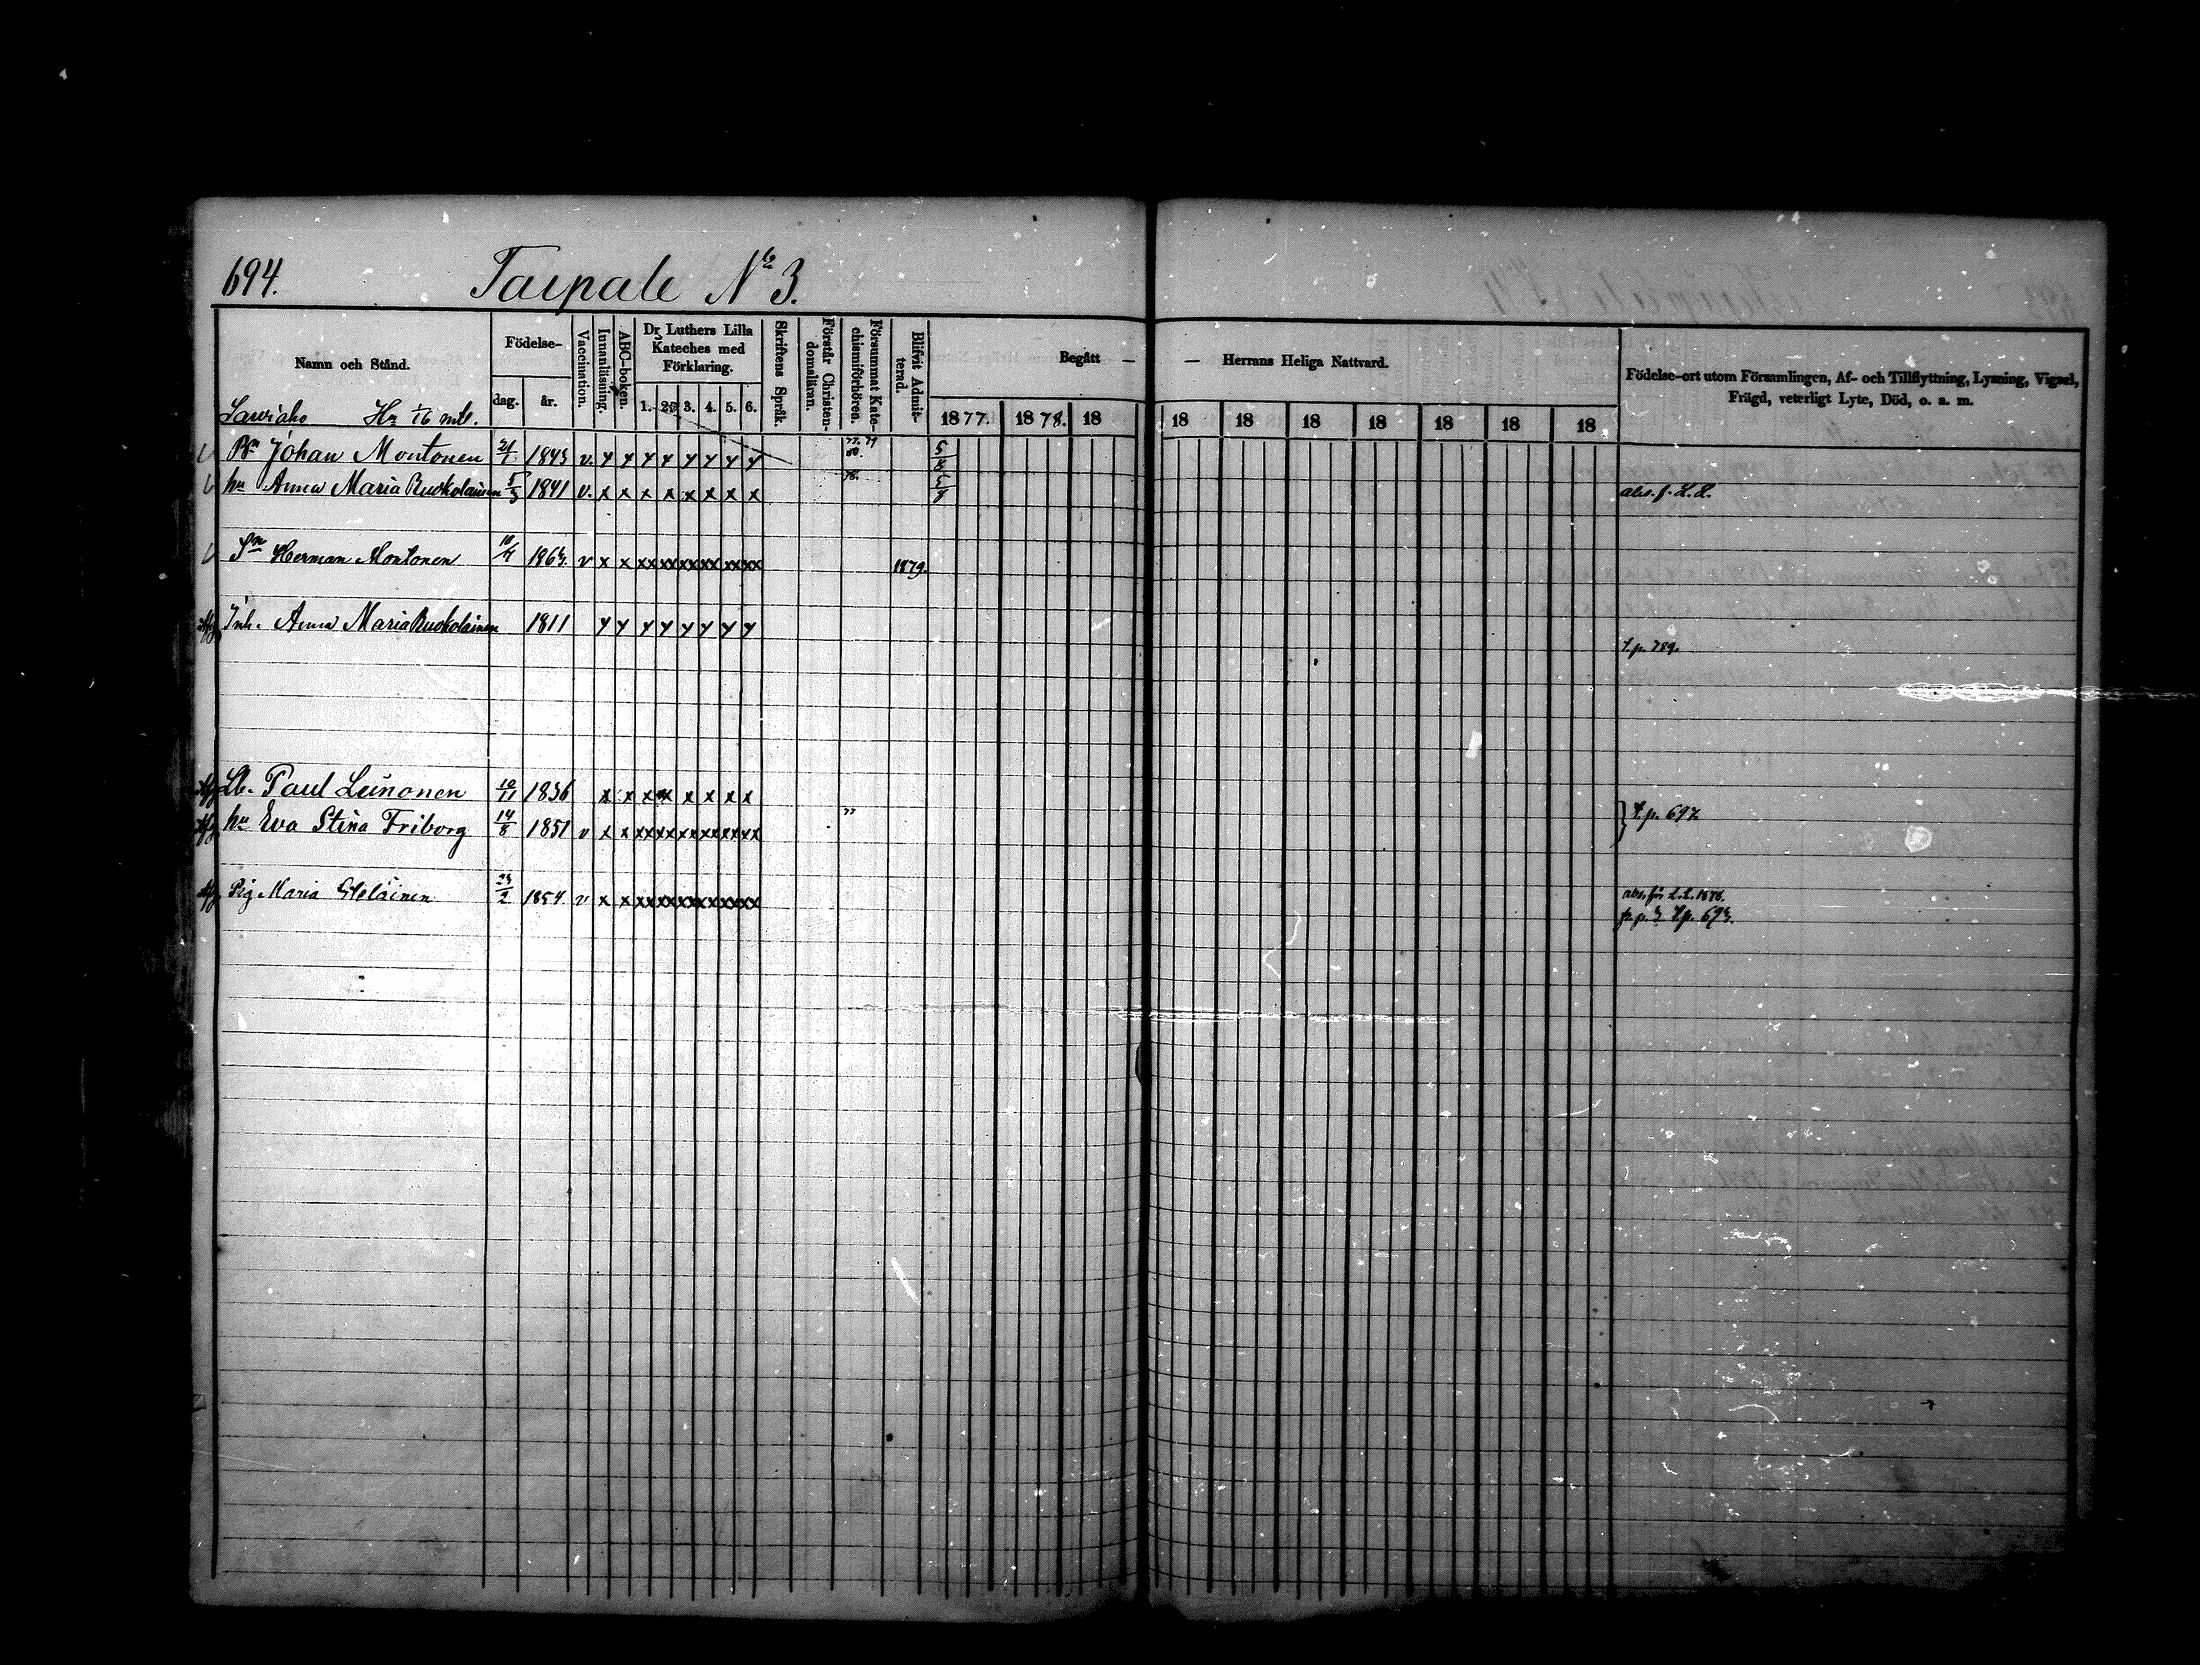 694. Taipale No 3.
Namn och Stånd. Födelse- dag. år. Vaccination. Innanläsning. ABC-boken. Dr Luthers Lilla Kateches med Förklaring. 1. 2. 3. 4. 5. 6. Skriftens Språk. Förstår Christendomsläran. Försummat Katechismiförhören. Blifvit Admitterad. Begått — — Herrans Heliga Nattvard. Födelse-ort utom Församlingen, Af- och Tillflyttning, Lysning, Vigsel,
Frägd, veterligt Lyte, Död, o. a. m.
1877. 1878. 18 18 18 18 18 18 18 18
Lauriaho Hn 1/6 mtl.
Bn Johan Montonen 21/7 1843 v. 77. 79 80. 5/8
hu Anna Maria Ruokolainen 5/3 1841 v. x x x x x x x x 78. 5/8 abs. f. L. L.
Sn Herman Montonen 10/7 1863. v x x xx xx xx xx xx xx 1879.
Inh. Anna Maria Ruokolainen 1811 T. p. 789.
Lb. Paul Leinonen 10/11 1836 x x x x x x x x
hu Eva Stina Friborg 14/8 1851 v x x xx xx xx xx xx xx " } T. p. 697
Pig Maria 23/2 1854. v x x xx xx xx xx xx xx abs. för L. L. 1878.
fr. p. T. p. 693.